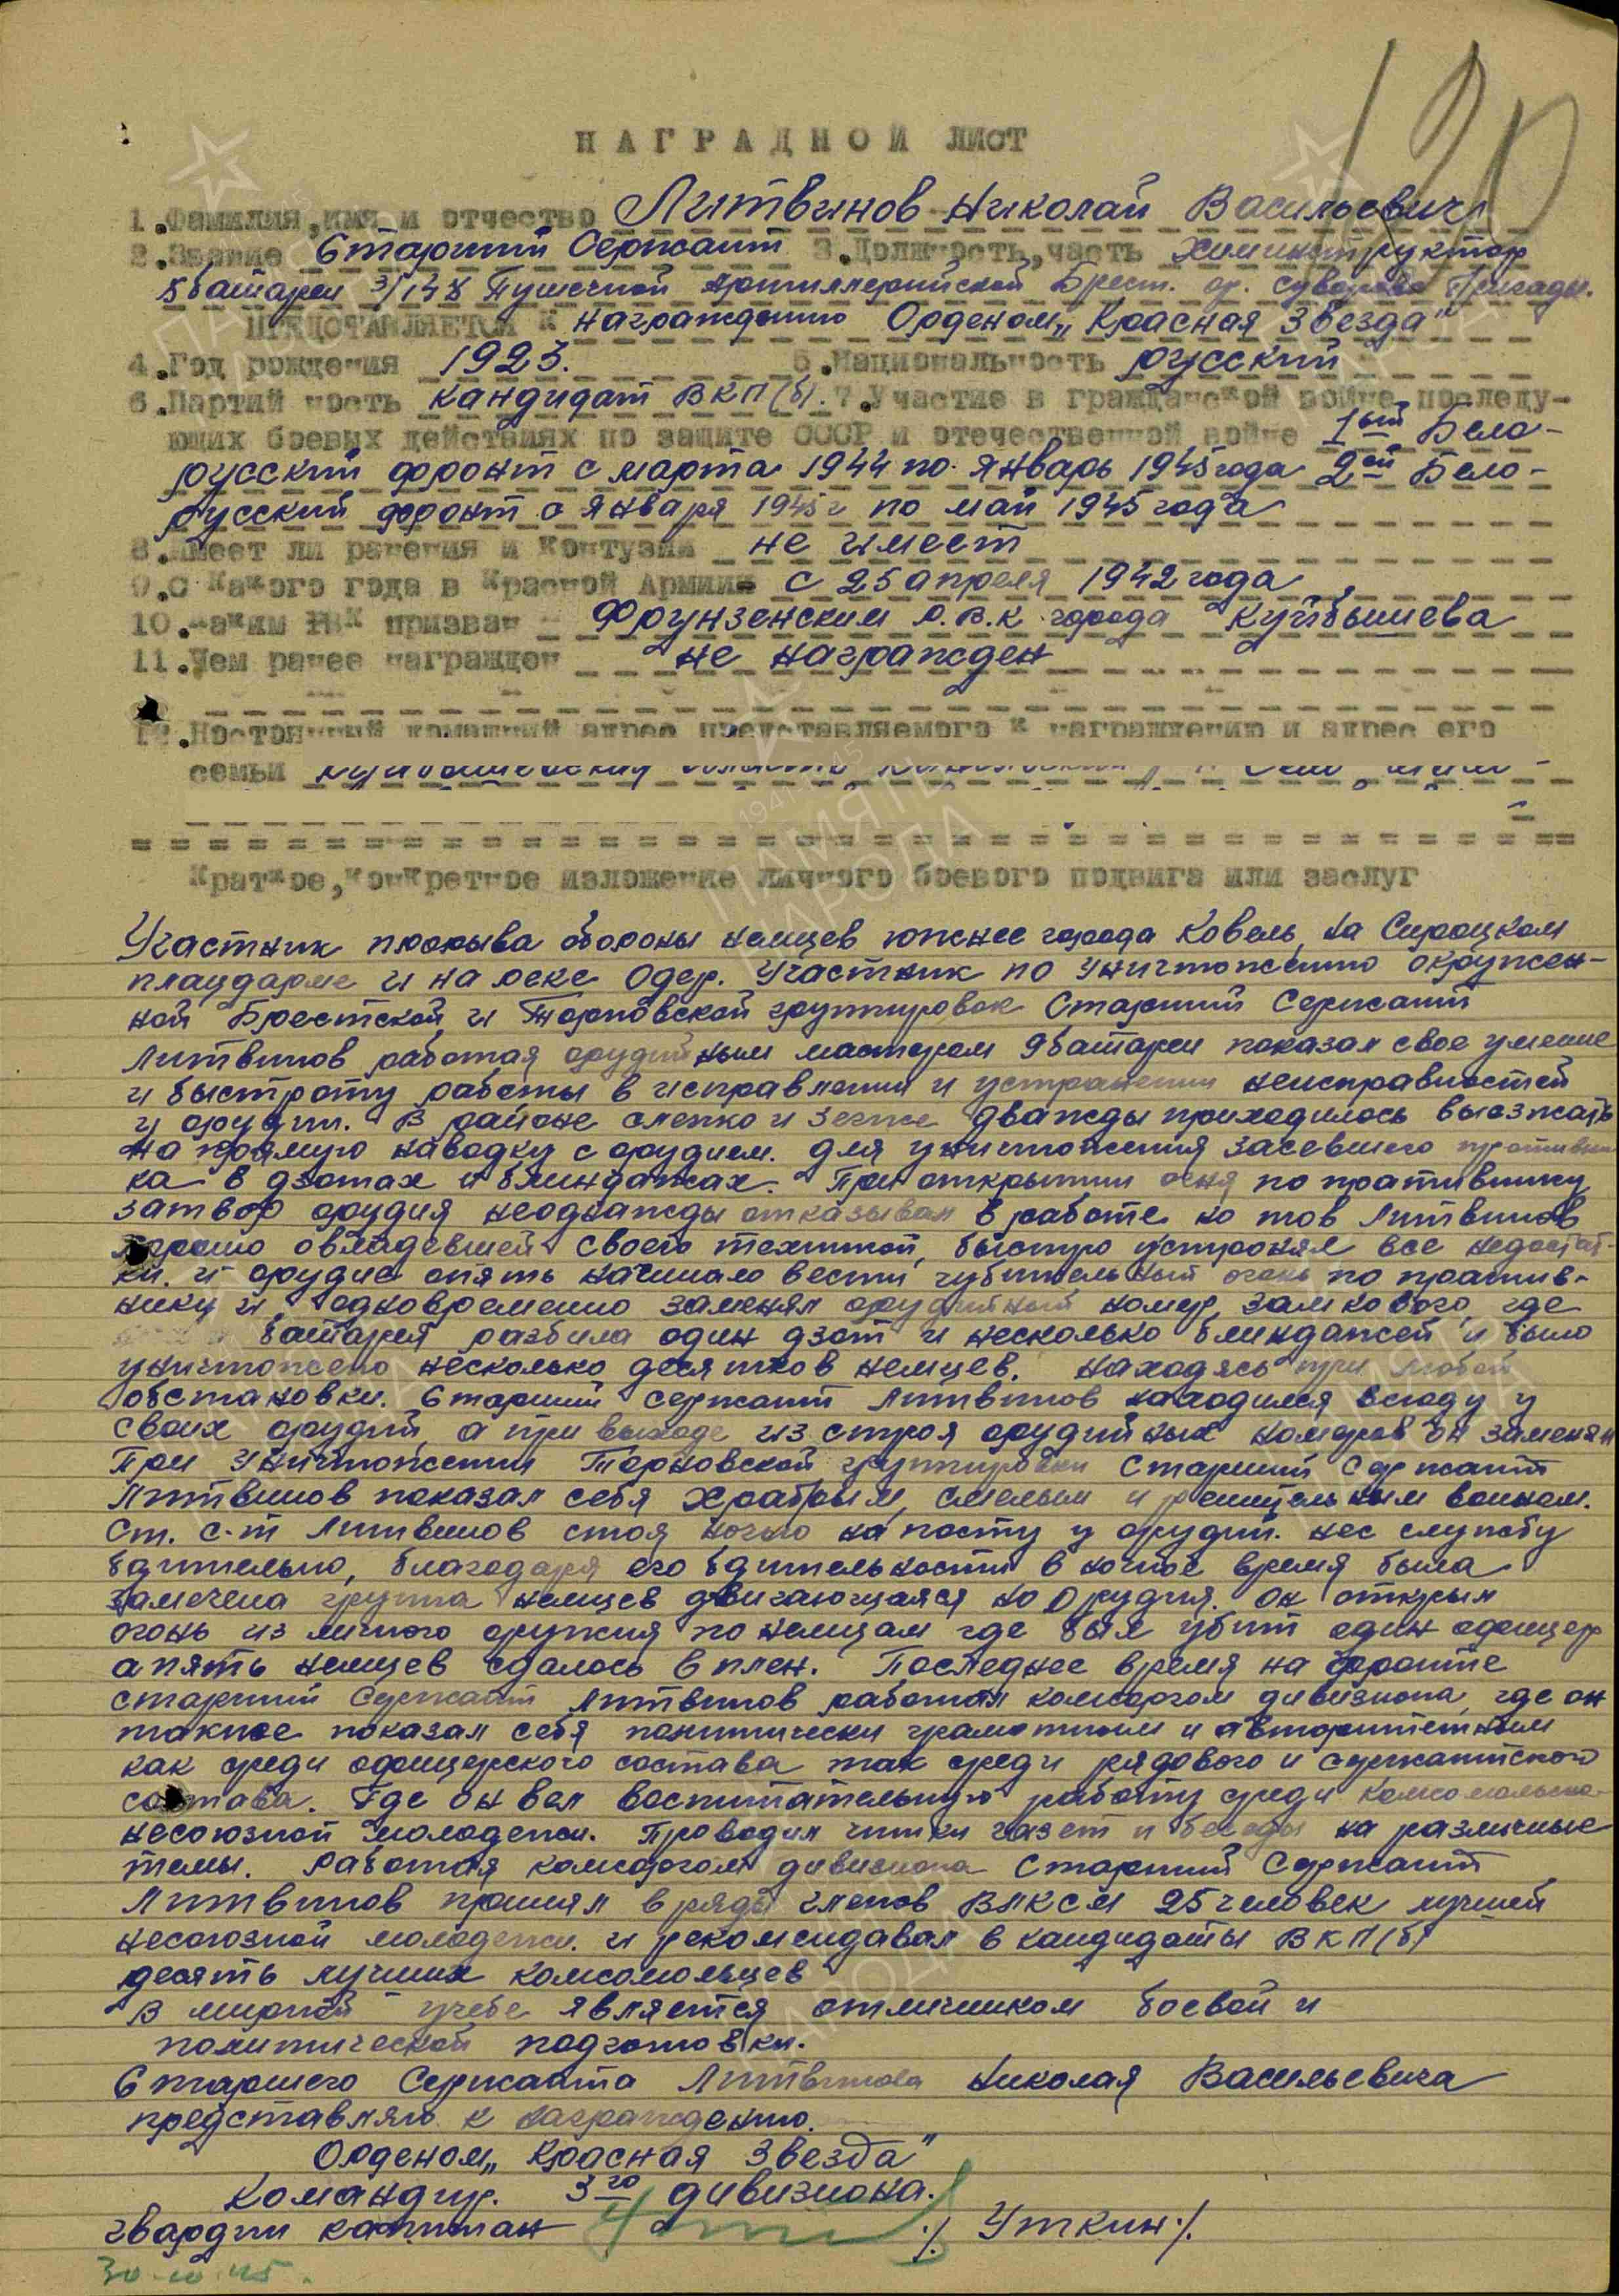 190
НАГРАДНОЙ ЛИСТ
1.Фамилия,имя и отчество Литвинов Николай Васильевич
2.Звание Старший Сержант 3.Должность,часть Химинструктор
8 батареи 3/148 Пушечной Артиллерийской Брест. ор. Суворова Бригады.
ПРЕДСТАВЛЯЕТСЯ К награждению Орденом „Красная Звезда"
4.Год рождения 1923. 5.Национальность русский
6.Партийность кандидат ВКП(б). 7.Участие в гражданской войне, последу-
ющих боевых действиях по защите СССР и отечественной войне 1ый Бело-
русский фронт с марта 1944 по январь 1945 года 2ой Бело-
русский фронт с января 1945 г по май 1945 года
8.Имеет ли ранения и контузии не имеет
9.С какого года в Красной Армии с 25 апреля 1942 года
10.Каким РВК призван Фрунзенским Р.В.К города Куйбышева
11.Чем ранее награжден не награжден
12.Постоянный домашний адрес представляемого к награждению и адрес его
семьи
Краткое,конкретное изложение личного боевого подвига или заслуг
Участник прорыва обороны немцев южнее города Ковель, на Сироцком
плацдарме и на реке Одер. Участник по уничтожению окружен-
ной Брестской и Торновской группировок Старший Сержант
Литвинов работая орудийным мастером 9 батареи показал свое умение
и быстроту работы в исправлении и устранении неисправностей
у орудий. В районе слепко и Зегже дважды приходилось выезжать
на прямую наводку с орудием. для уничтожения засевшего противни-
ка в дзотах и блиндажах. При открытии огня по противнику
затвор орудия неоднажды отказывал в работе но тов Литвинов
хорошо овладевшей своей техникой, быстро устронял все недостат-
ки. и орудие опять начинало вести губительный огонь по против-
нику и одновременно заменял орудийный номер, замкового, где
батарея разбила один дзот и несколько блиндажей и было
уничтожено несколько десятков немцев. Находясь при любой
обстановки. Старший сержант Литвинов находился всюду у
своих орудий, а при выходе из строя орудийных номеров он заменял
При уничтожении Торновской группировки Старший Сержант
Литвинов показал себя храбрым, смелым и решительным воином.
Ст. с-т Литвинов стоя ночью на посту у орудий. нес службу
бдительно, благодаря его бдительности в ночное время была
замечена группа немцев двигающаяся ко орудия. Он открыл
огонь из личного оружия по немцам где был убит один офицер
а пять немцев сдалось в плен. Последнее время на фронте
старший Сержант Литвинов работал комсоргом дивизиона, где он
также показал себя политически грамотным и авторитетным
как среди офицерского состава так среди рядового и сержантского
состава. Где он вел воспитательную работу среди комсомольско-
несоюзной молодежи. Проводил читки газет и беседы на различные
темы. Работая комсоргом дивизиона Старший Сержант
Литвинов принял в ряды членов ВЛКСМ 25 человек лучшей
несоюзной молодежи. и рекомендовал в кандидаты ВКП(б)
десять лучших комсомольцев
В мирной учебе является отличником боевой и
политической подготовки.
Старшего Сержанта Литвинова Николая Васильевича
представляю к награждению
Орденом „Красная Звезда"
Командир. 3го дивизиона.
гвардии капитан ./ Уткин ./
30.10.45.